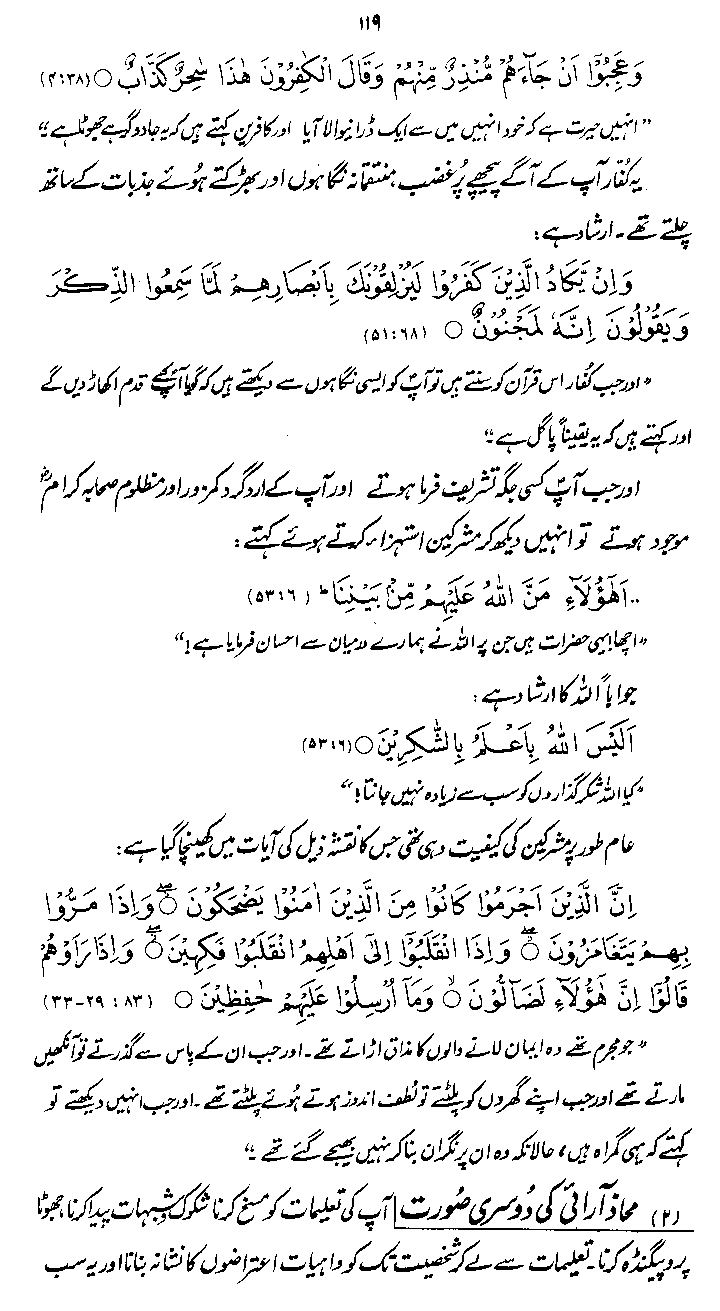 ۱۱۹
وَعَجِبُوْٓا اَنْ جَآءَهُمْ مُّنْذِرٌ مِّنْهُمْ وَقَالَ الْكٰفِرُوْنَ هٰذَا سٰحِرٌ كَذَّابٌ ○ (۴:۳۸)
”انہیں حیرت ہے کہ خود انہیں میں سے ایک ڈرانیوالا آیا اور کافرین کہتے ہیں کہ یہ جادوگر ہے جھوٹا ہے“
یہ کفار آپ کے آگے پیچھے پُر غضب، منتقمانہ نگاہوں اور بھڑکتے ہُوئے جذبات کے ساتھ
چلتے تھے۔ ارشاد ہے:
وَاِنْ يَّكَادُ الَّذِيْنَ كَفَرُوْا لَيُزْلِقُوْنَكَ بِاَبْصَارِهِمْ لَمَّا سَمِعُوا الذِّكْرَ
وَيَقُوْلُوْنَ اِنَّهٗ لَمَجْنُوْنٌ ○ (۵۱:۶۸)
”اور جب کفار اس قرآن کو سنتے ہیں تو آپؐ کو ایسی نگاہوں سے دیکھتے ہیں کہ گویا آپؐ کے قدم اکھاڑ دیں گے
اور کہتے ہیں کہ یہ یقیناً پاگل ہے“
اور جب آپؐ کسی جگہ تشریف فرما ہوتے اور آپ کے اردگرد کمزور اور مظلوم صحابہ کرامؓ
موجود ہوتے تو انہیں دیکھ کر مشرکین استہزاء کرتے ہوئے کہتے:
..اَهٰٓؤُلَآءِ مَنَّ اللّٰهُ عَلَيْهِمْ مِّنْۢ بَيْنِنَا ؕ (۵۳:۶)
”اچھا! یہی حضرات ہیں جن پر اللہ نے ہمارے درمیان سے احسان فرمایا ہے!“
جواباً اللہ کا ارشاد ہے:
اَلَيْسَ اللّٰهُ بِاَعْلَمَ بِالشّٰكِرِيْنَ ○ (۵۳:۶)
”کیا اللہ شکر گذاروں کو سب سے زیادہ نہیں جانتا!“
عام طور پر مشرکین کی کیفیت وہی تھی جس کا نقشہ ذیل کی آیات میں کھینچا گیا ہے:
اِنَّ الَّذِيْنَ اَجْرَمُوْا كَانُوْا مِنَ الَّذِيْنَ اٰمَنُوْا يَضْحَكُوْنَ ○ وَاِذَا مَرُّوْا
بِهِمْ يَتَغَامَزُوْنَ ○ وَاِذَا انْقَلَبُوْٓا اِلٰٓى اَهْلِهِمُ انْقَلَبُوْا فَكِهِيْنَ ○ وَاِذَا رَاَوْهُمْ
قَالُوْٓا اِنَّ هٰٓؤُلَآءِ لَضَآلُّوْنَ ○ وَمَآ اُرْسِلُوْا عَلَيْهِمْ حٰفِظِيْنَ ○ (۸۳: ۲۹-۳۳)
”جو مجرم تھے وہ ایمان لانے والوں کا مذاق اڑاتے تھے۔ اور جب ان کے پاس سے گذرتے تو آنکھیں
مارتے تھے اور جب اپنے گھروں کو پلٹتے تو لُطف اندوز ہوتے ہُوئے پلٹتے تھے۔ اور جب انہیں دیکھتے تو
کہتے کہ یہی گمراہ ہیں، حالانکہ وہ ان پر نگران بنا کر نہیں بھیجے گئے تھے۔“
(۲) محاذ آرائی کی دُوسری صُورت آپ کی تعلیمات کو مسخ کرنا شکوک و شبہات پیدا کرنا، جھوٹا
پروپیگنڈہ کرنا۔ تعلیمات سے لے کر شخصیت تک کو واہیات اعتراضوں کا نشانہ بنانا اور یہ سب